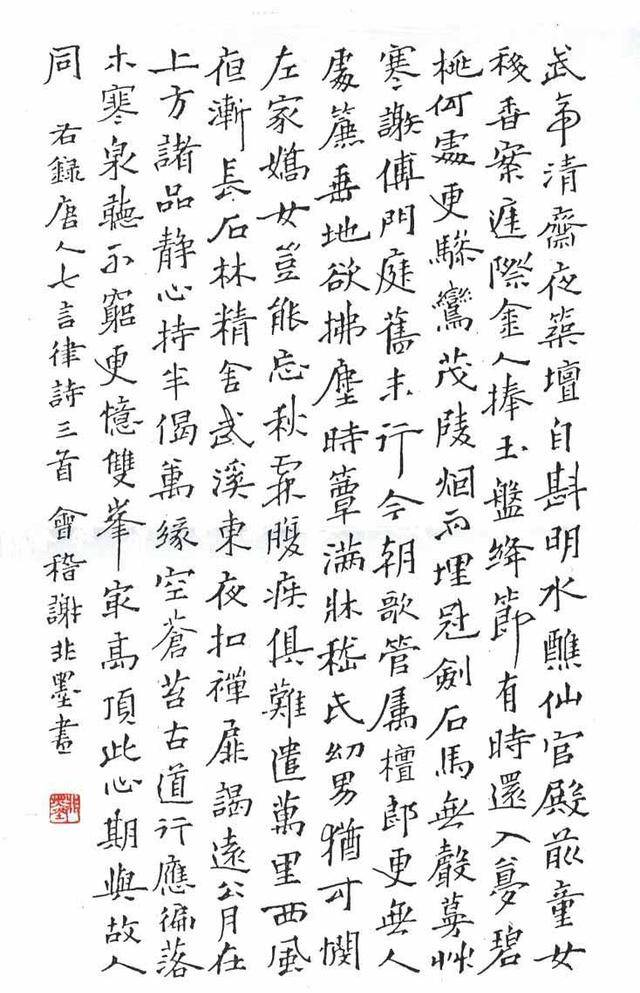 武帝清齋夜築壇自斟明水醮仙官殿前童女
移香案進際金人捧玉盤絳節有時還入夢碧
桃何處更驂鸞茂陵烟雨埋冠劍石馬無聲蔓草
寒謝傅門庭舊末行今朝歌管属檀郎更無人
處簾垂地欲拂塵時簟滿牀嵇氏幼男猶可憫
左家嬌女豈能忘秋霖腹疾俱難遣萬里西風
夜漸長石林精舍武溪東夜扣禪扉謁遠公月在
上方諸品静心持半偈萬緣空蒼苔古道行應徧落
木寒泉聽不窮更憶雙峯最高頂此心期與故人
同 右錄唐人七言律詩三首 會稽謝非墨書
非墨